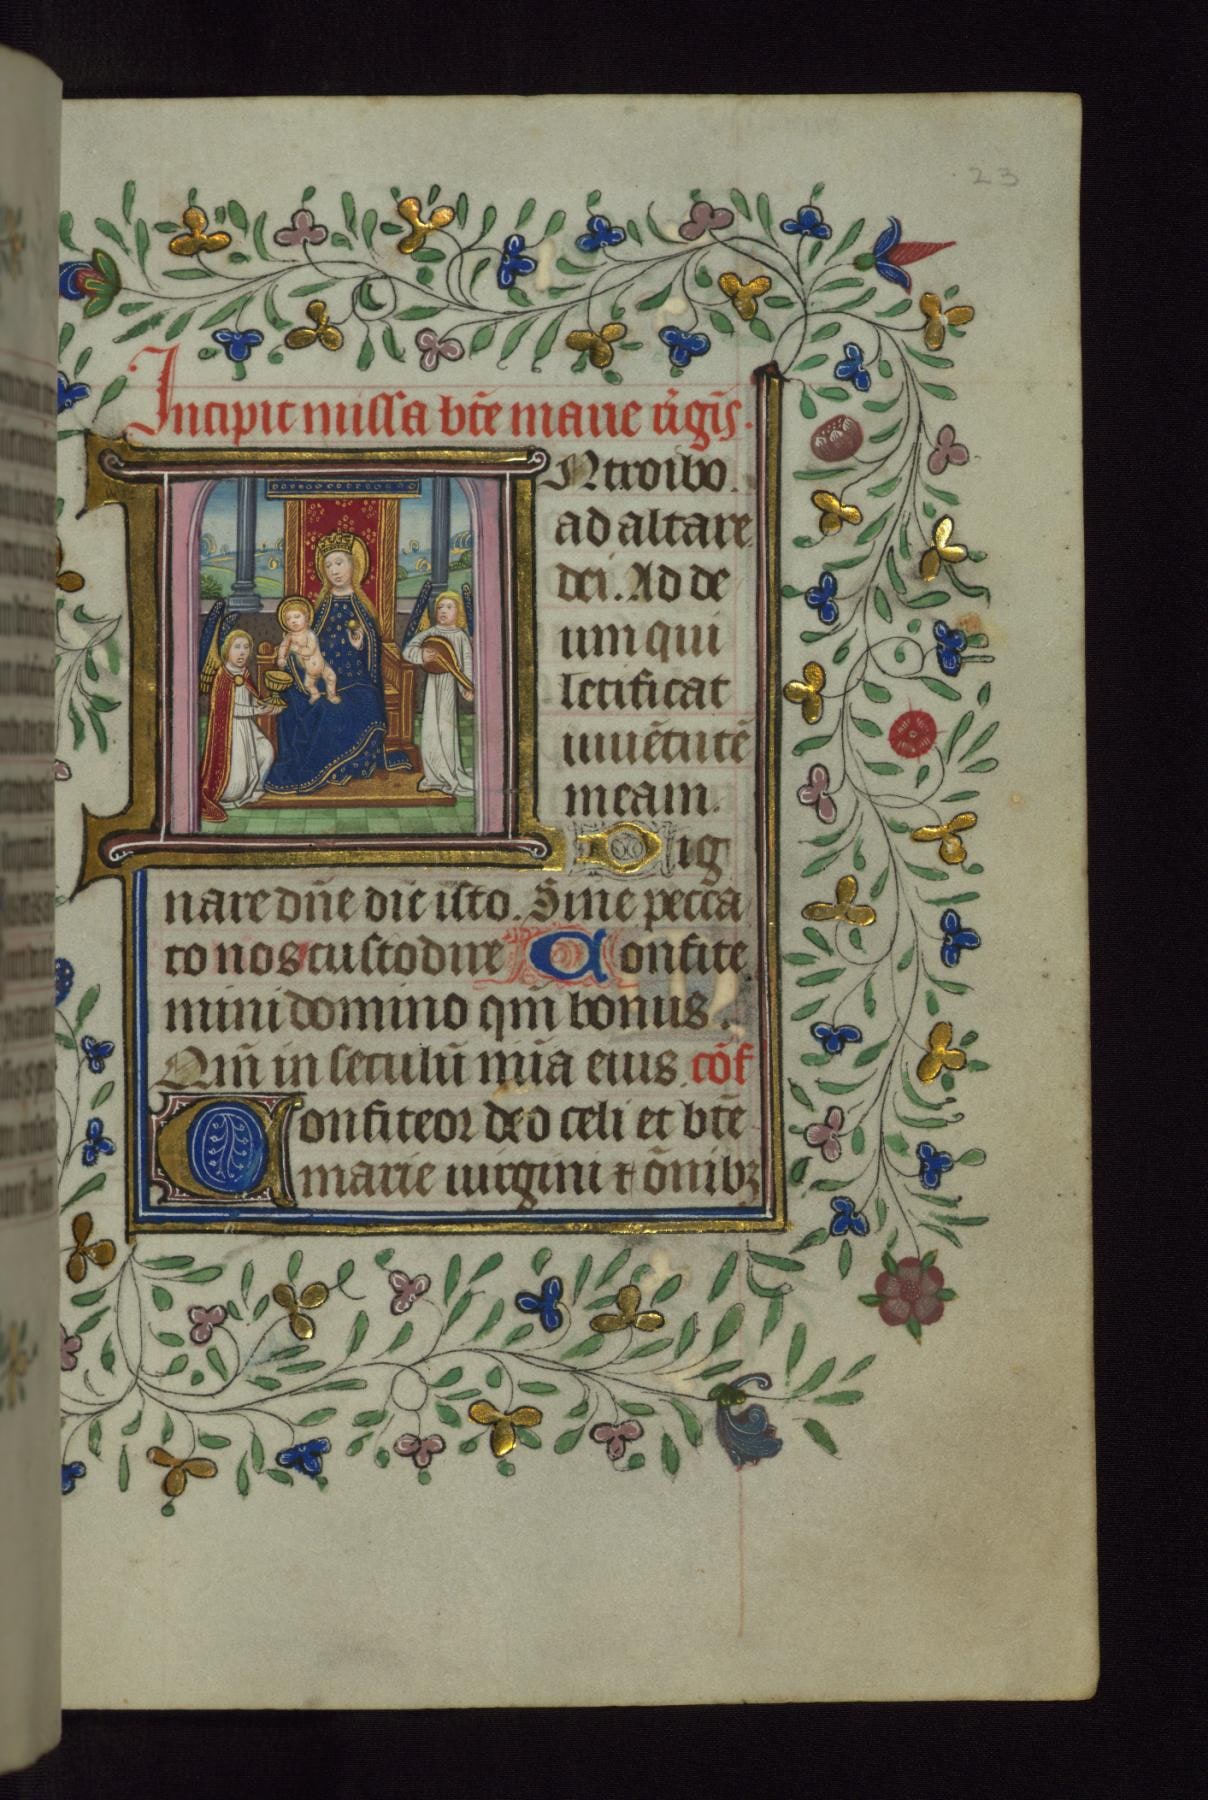 23
Incipit missa bt̄e marie v̄ gīs.
INtroibo
ad altare
dei. Ad de
um qui
letificat
iuuētutē
meam.
Dig
nare dn̄e die isto. Sine pecca
to nos custodire Confite
mini domino qm̄ bonus.
Qm̄ in seculū mīa eius. cōf
Confiteor deo celi et bt̄e
marie uirgini ⁊ ōnibꝫ